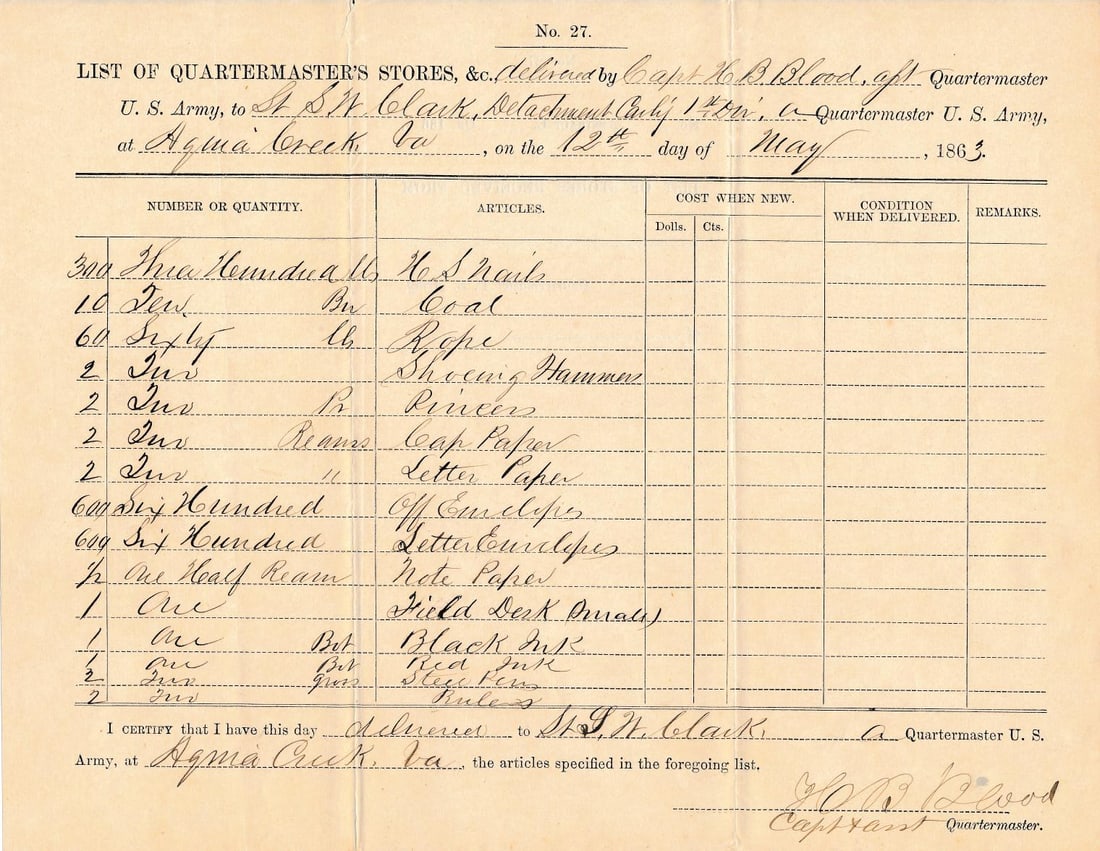 No. 27.
LIST OF QUARTERMASTER'S STORES, &c. delivered by Capt H. B. Blood, Quartermaster
U. S. Army, to Lt S W Clark, Detachment Cavly 1st Div, a Quartermaster U. S. Army,
at Aquia Creek Va, on the 12th day of May, 1863.
NUMBER OR QUANTITY. ARTICLES. COST WHEN NEW. CONDITION WHEN DELIVERED. REMARKS.
Dolls. Cts.
300 Three Hundred lbs H S Nails
10 Ten Bu Coal
60 Sixty lbs Rope
2 Two Shoeing Hammers
2 Two Pr Pincers
2 Two Reams Cap Paper
2 Two " Letter Paper
600 Six Hundred Off Envelopes
600 Six Hundred Letter Envelopes
1/2 One Half Ream Note Paper
1 One Field Desk (small)
1 One Bot Black Ink
1 One Bot Red Ink
2 Two gross Steel Pens
2 Two Rulers
I CERTIFY that I have this day delivered to Lt S. W. Clark, a Quartermaster U. S.
Army, at Aquia Creek, Va, the articles specified in the foregoing list.
H B Blood
Capt & asst Quartermaster.